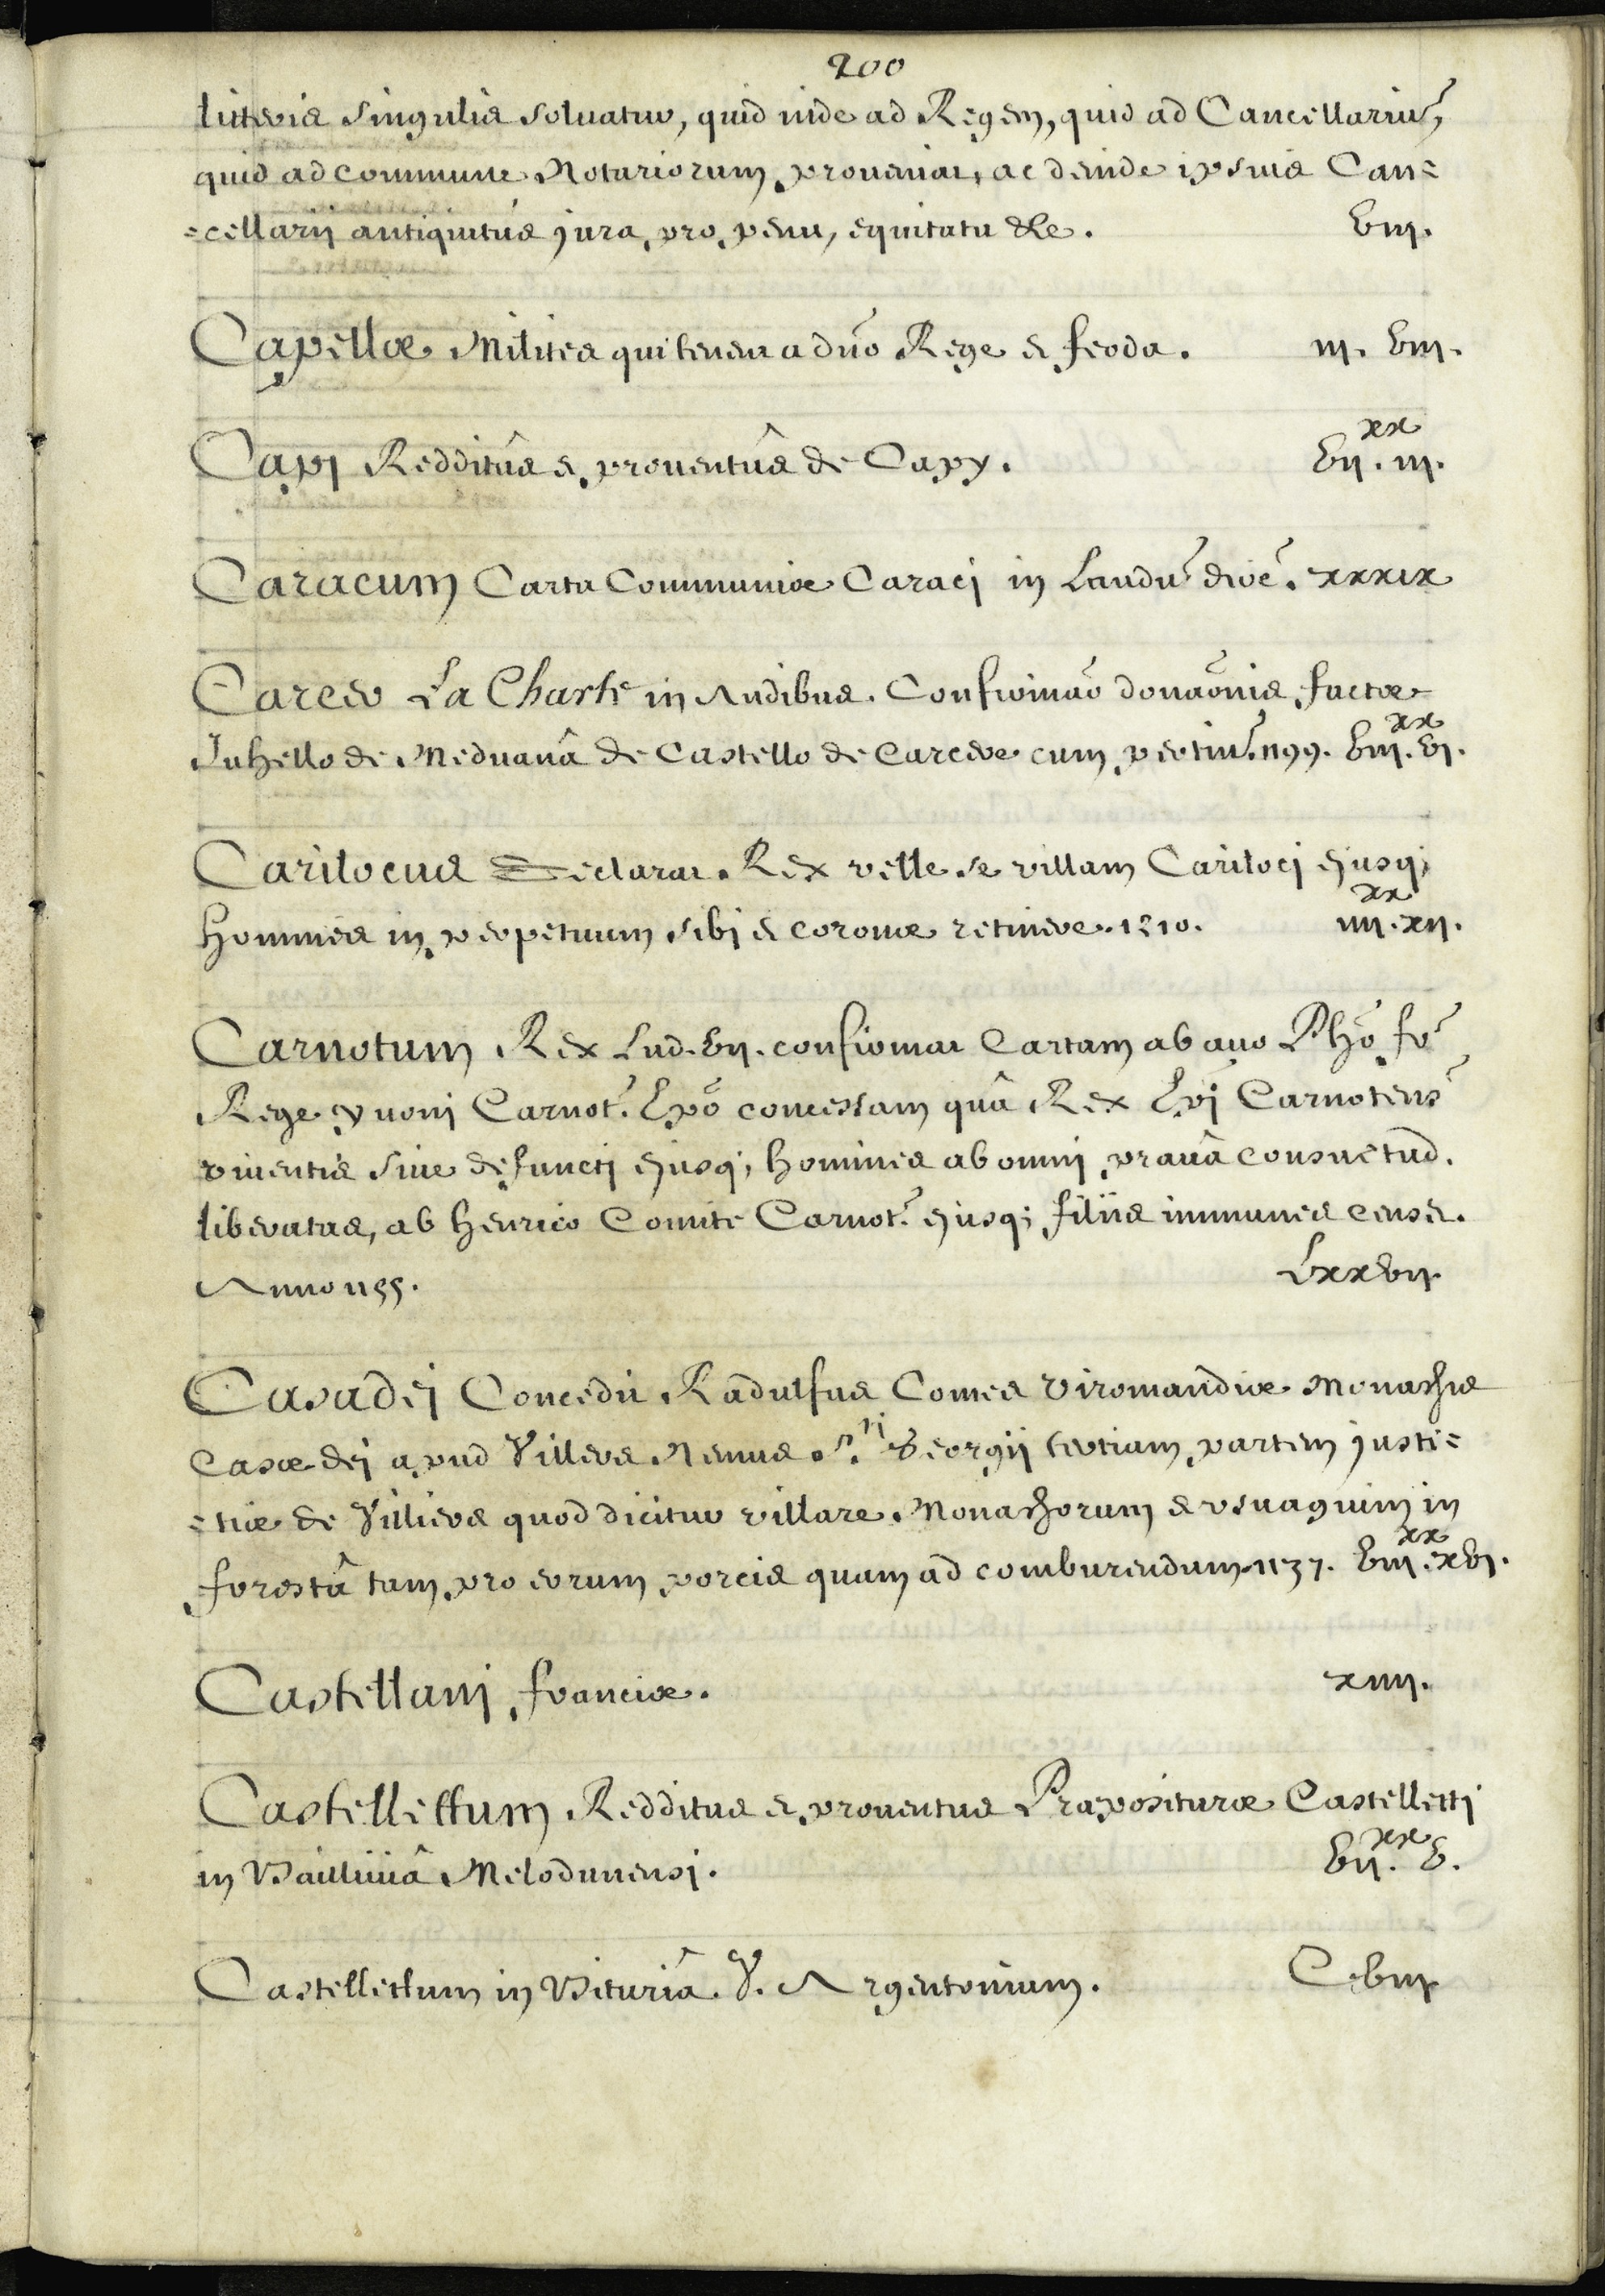 200
litteris singulis soluatur, quid inde ad Regem, quid ad Cancellariu᷃,
quid ad commune Notariorum proueniat, ac deinde ipsius Can=
=cellarij antiquitùs jura, pro penu, equitatu &c. viij.
Capellæ Milites qui tenent a dño Rege et feoda. iij. viij.
Capi Redditûs et prouentûs de Capy. vij.xx iij.
Caracum Carta Communiæ Caraci in Laudu᷃ dioc᷃. xxxix
Carcer La Chartre in Andibus. Confirmaõ donaõnis factæ
Juhello de Meduanâ de Castello de Carcere cum pertin᷃. 1199. viij.xx vj.
Carilocus Declarat Rex velle se villam Cariloci ejusq;
homines in perpetuum sibi et coronæ retinere. 1210. iiij.xx xij.
Carnotum Rex Lud. vij. confirmat Cartam ab auo Phõ fr᷃
Rege yuoni Carnot᷃. Epõ concessam quâ Rex Epi Carnotens᷃
viuentis siue defuncti ejusq; homines ab omni prauâ consuetud.
liberatas, ab henrico Comite Carnot᷃. ejusq; filiis immunes censet.
Anno 1155. Lxxvij.
Casadei Concedit Radulfus Comes Viromandiæ Monachis
Casæ dei apud Villers Nemus S.ti Georgij tertiam partem justi=
=tiæ de Villiers quod dicitur villare Monachorum et vsuagium in
forestâ tam pro eorum porcis quam ad comburendum. 1137. viij.xx xvj.
Castellani franciæ. xiiij.
Castellettum Redditus et prouentus Præposituræ Castelletti
in Bailliuiâ Melodunensi. vij.xx v.
Castellettum in Bituriâ. V. Argentonium. C.viij